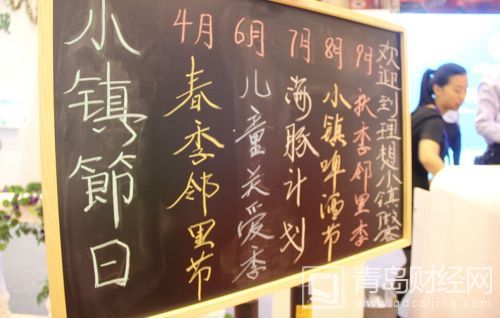 小镇節日
4月
春季邻里节
6月
儿童关爱季
7月
海豚计划
8月
小镇啤酒节
9月
秋季邻里季
欢迎到理想小镇做客
青岛财经网
www.qdcaijing.com